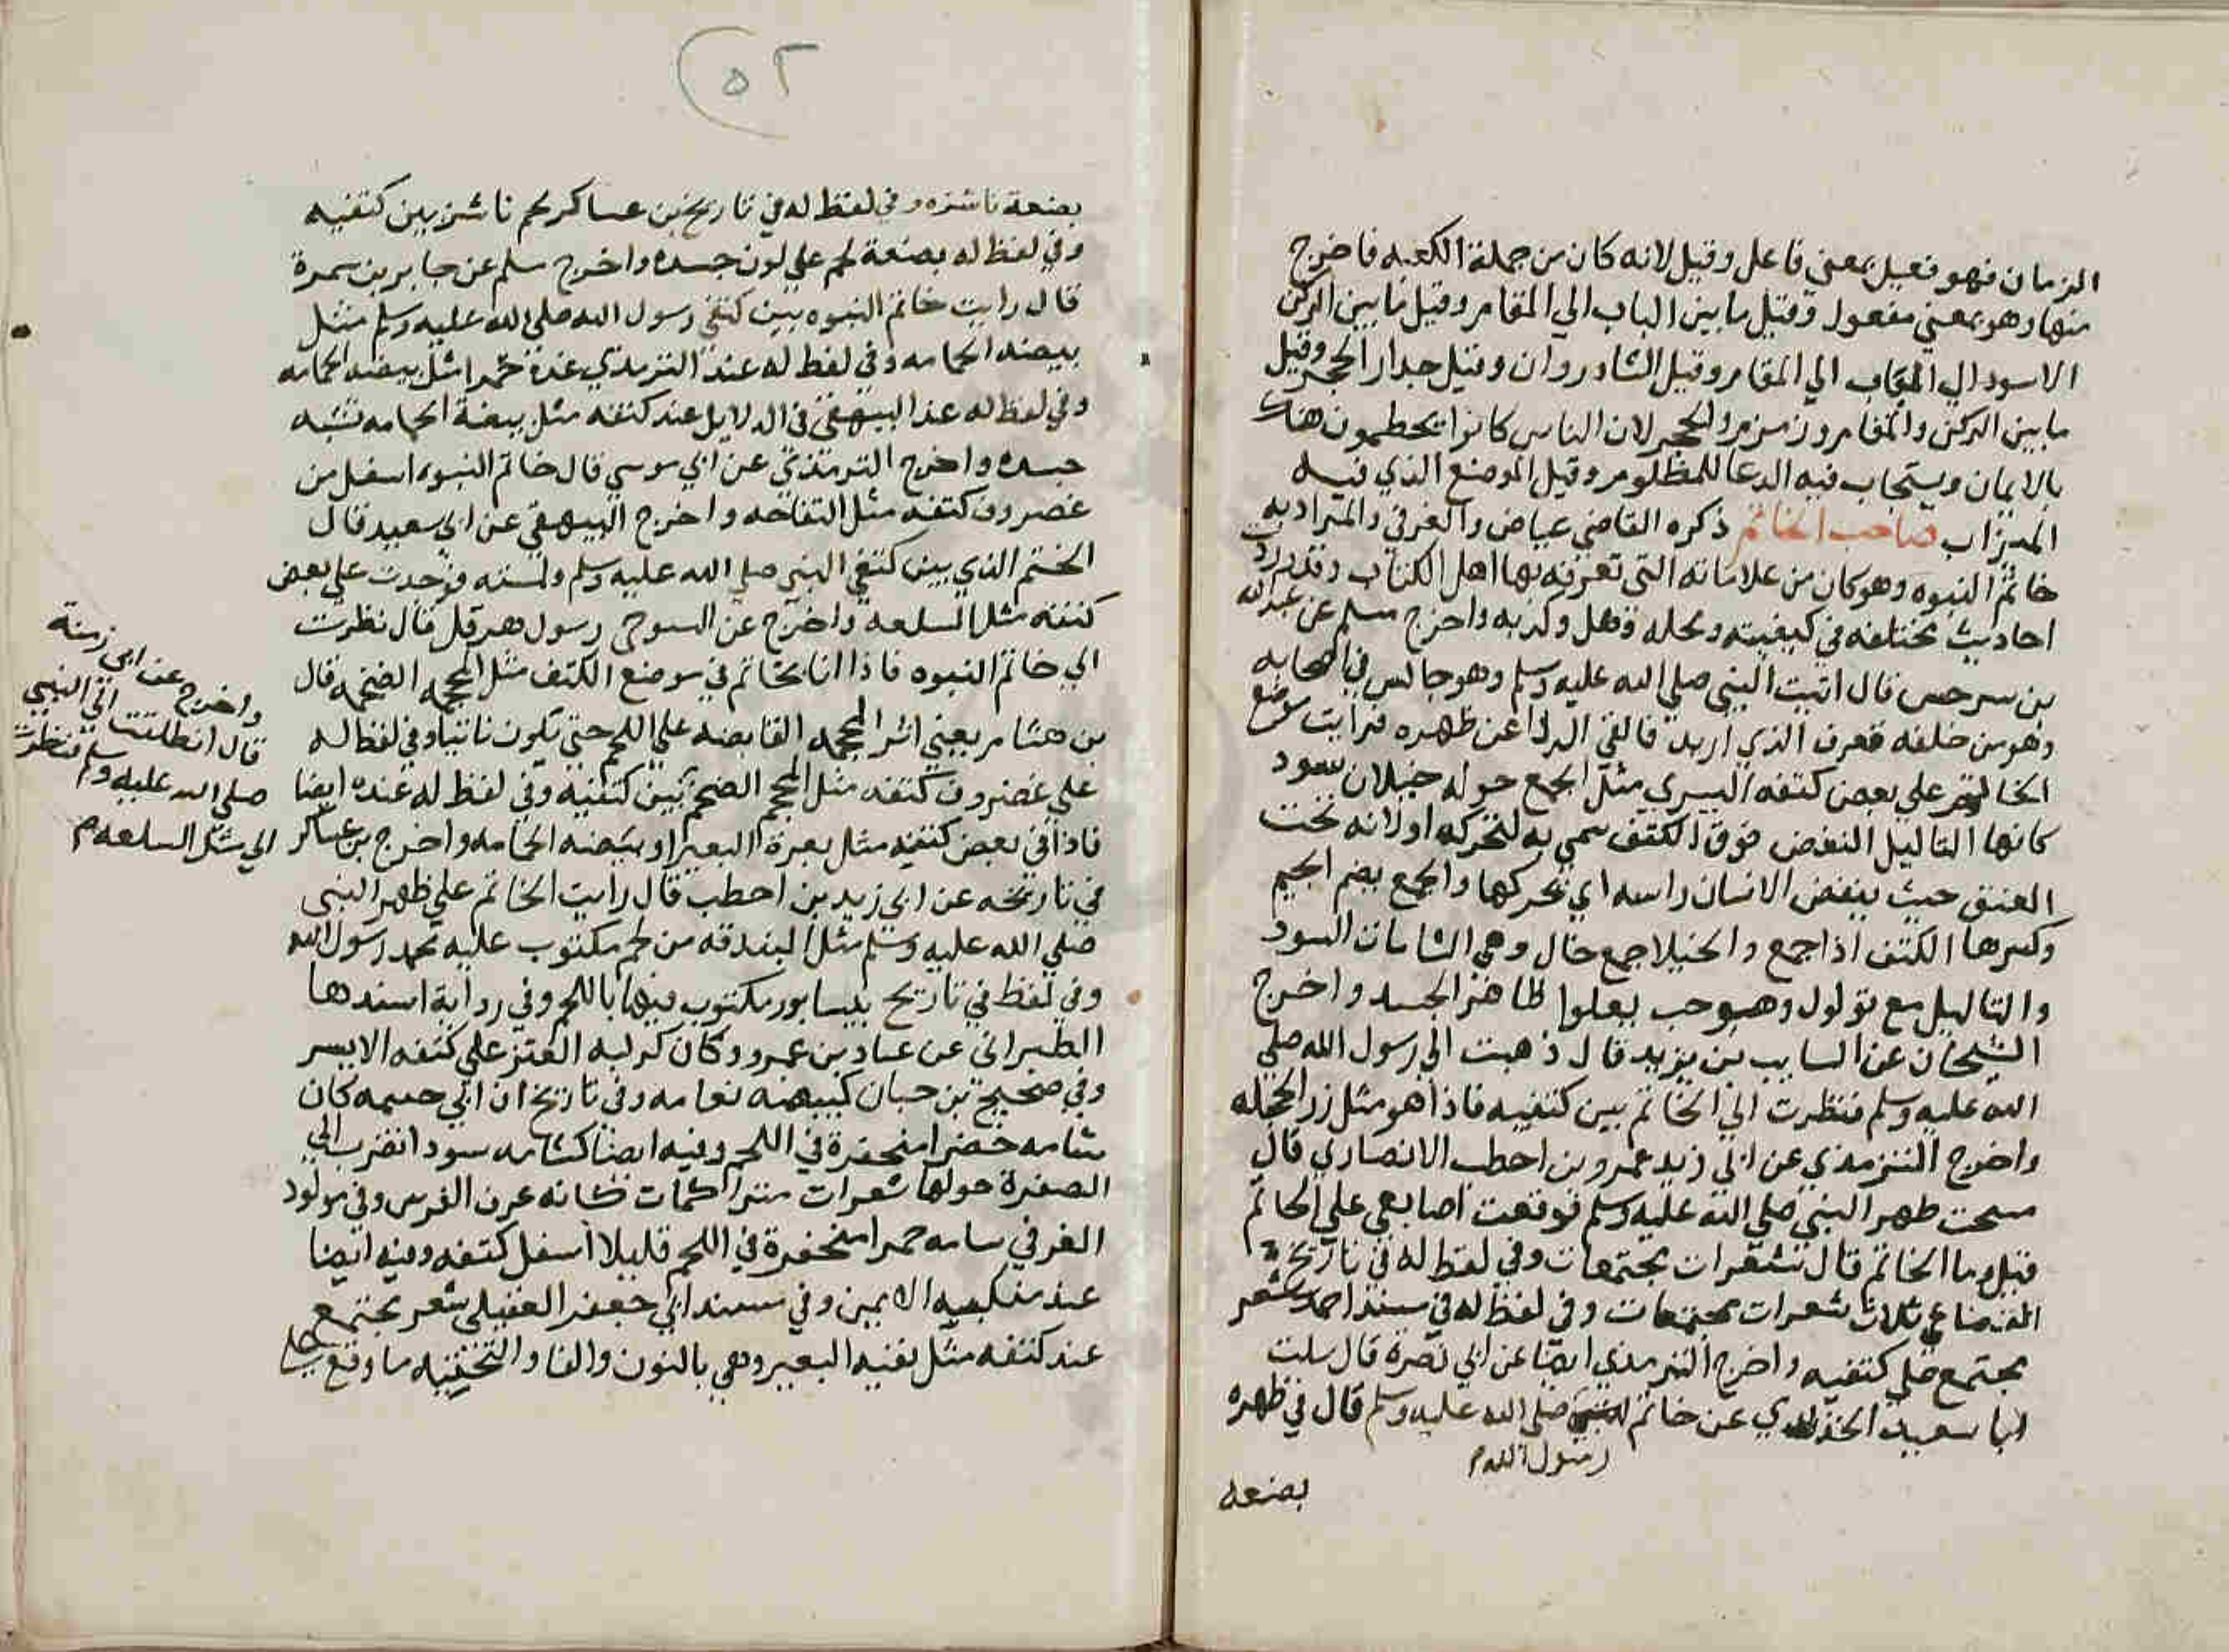 الزمان فهو فعيل بمعني فاعل وقيل لانه كان من جملة الكعبه فاخرج
منها وهو بمعني مفعول وقيل ما بين الباب الي المقام وقيل ما بين الركن
الاسود الي الباب الي المقام وقيل الشادروان وقيل جدار الحجر وقيل
ما بين الركن والمقام وزمزم والحجر لان الناس كانوا يحطمون هناك
بالايمان ويستجاب فيه الدعا للمظلوم وقيل الموضع الذي فيه
الميزاب صاحب الخاتم ذكره القاضي عياض والعزفي والمراد به
خاتم النبوه وهو كان من علاماته التي تعرفه بها اهل الكتاب وقد وردت
احاديث مختلفه في كيفيته ومحله وهل ولد به واخرج مسلم عن عبد الله
بن سرحس قال اتيت النبي صلي الله عليه وسلم وهو جالس في اصحابه
وهو من خلفه فعرف الذي اريد فالقي الردا عن ظهره فرايت موضع
الخاتم علي بعض كتفه اليسري مثل الجمع حوله خيلان سود
كانها الثاليل النغض فوق الكتف سمي به لتحركه او لانه تحت
العنق حيث ينغض الانسان راسه اي يحركها والجمع بضم الجيم
وكسرها الكتف اذا جمع والخيلا جمع خال وهي الشامات السود
والثاليل مع تولول وهو حب يعلوا ظاهر الجسد واخرج
الشيخان عن السايب بن يزيد قال ذهبت الي رسول الله صلي
الله عليه وسلم فنظرت الي الخاتم بين كتفيه فاذا هو مثل زر الحجله
واخرج الترمذي عن ابي زيد عمرو بن احطب الانصاري قال
مسحت ظهر النبي صلي الله عليه وسلم فوقعت اصابعي علي الخاتم
قيل وما الخاتم قال شعرات مجتمعات وفي لفظ له في تاريخ
ثلاث شعرات مجتمعات وفي لفظ له في مسند احمد شعر
مجتمع علي كتفيه واخرج الترمذي ايضا عن ابي نضرة قال سلت
ابا سعيد الخذري عن خاتم صلي الله عليه وسلم قال في ظهره
رسول الله م
بضعه
٥٢
بضعة ناشزه وفي لفظ له في تاريخ بن عساكر لحم ناشز بين كتفيه
وفي لفظ له بضعة لحم علي لون جسده واخرج مسلم عن جابر بن سمرة
قال رايت خاتم النبوه بين كتفي رسول الله صلي الله عليه وسلم مثل
بيضه الحمامه وفي لفظ له عند الترمذي غدة حمرا مثل بيضه الحمامه
وفي لفظ له عند البيهقي في الدلايل عند كتفه مثل بيضة الحمامه تشبه
جسده واخرج الترمذي عن ابي موسي قال خاتم النبوه اسفل من
غضروف كتفه مثل التفاحه واخرج البيهقي عن ابي سعيد قال
الختم الذي بين كتفي النبي صلي الله عليه وسلم ولمسته فوجدت علي بعض
كتفه مثل السلعه واخرج عن التنوخي رسول هرقل قال نظرت
الي خاتم النبوه فاذا انا بخاتم في موضع الكتف مثل المحجمه الضخمه قال
بن هشام يعني اثر المحجمه القابضه علي اللحم حتي تكون ناتيا وفي لفظ له
علي غضروف كتفه مثل المحجم الضخم بين كتفيه وفي لفظ له عنده ايضا
فاذا في بعض كتفيه مثل بعرة البعير او بيضه الحمامه واخرج بن عساكر
في تاريخه عن ابي زيد بن احطب قال رايت الخاتم علي ظهر النبي
صلي الله عليه وسلم مثل البندقه من لحم مكتوب عليه محمد رسول الله
وفي لفظ في تاريخ نيسابور مكتوب فيها باللحم وفي رواية اسندها
الطبراني عن عباد بن عمرو وكان كركبه العنز علي كتفه الايسر
وفي صحيح بن حبان كبيضه نعامه وفي تاريخ ان ابي خيثمه كان
شامه خضرا منحفرة في اللحم وفيه ايضا كشامه سودا تضرب الي
الصفرة حولها شعرات متراكمات كانه عرف الفرس وفي مولود
العزفي شامه حمرا منحفرة في اللحم قليلا اسفل كتفه وفيه ايضا
عند منكبيه الايمن وفي مسند ابي جعفر العقيلي شعر مجتمع
عند كتفه مثل نفنيه البعير وهي بالنون والفا والتحتيه ما وقع علي
واخرج عن ابي رمثة
قال انطلقت الي النبي
صلي الله عليه وسلم فنظرت
الي مثل السلعه م